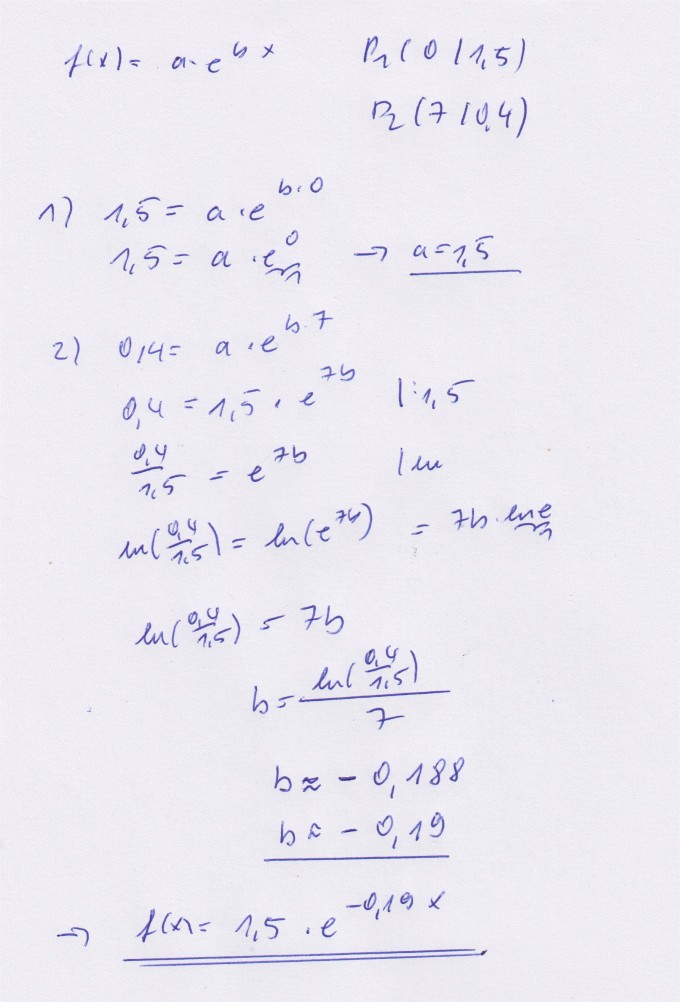 f(x) = a · e^{b x}    P₁ ( 0 | 1,5 )
P₂ ( 7 | 0,4 )
1) 1,5 = a · e^{b·0}
1,5 = a · e^0    → a = 1,5
1
2) 0,4 = a · e^{b·7}
0,4 = 1,5 · e^{7b}    | : 1,5
0,4/1,5 = e^{7b}    | ln
ln(0,4/1,5) = ln(e^{7b}) = 7b · ln e
1
ln(0,4/1,5) = 7b
b = ln(0,4/1,5)/7
b ≈ - 0,188
b ≈ - 0,19
→ f(x) = 1,5 · e^{-0,19 x}